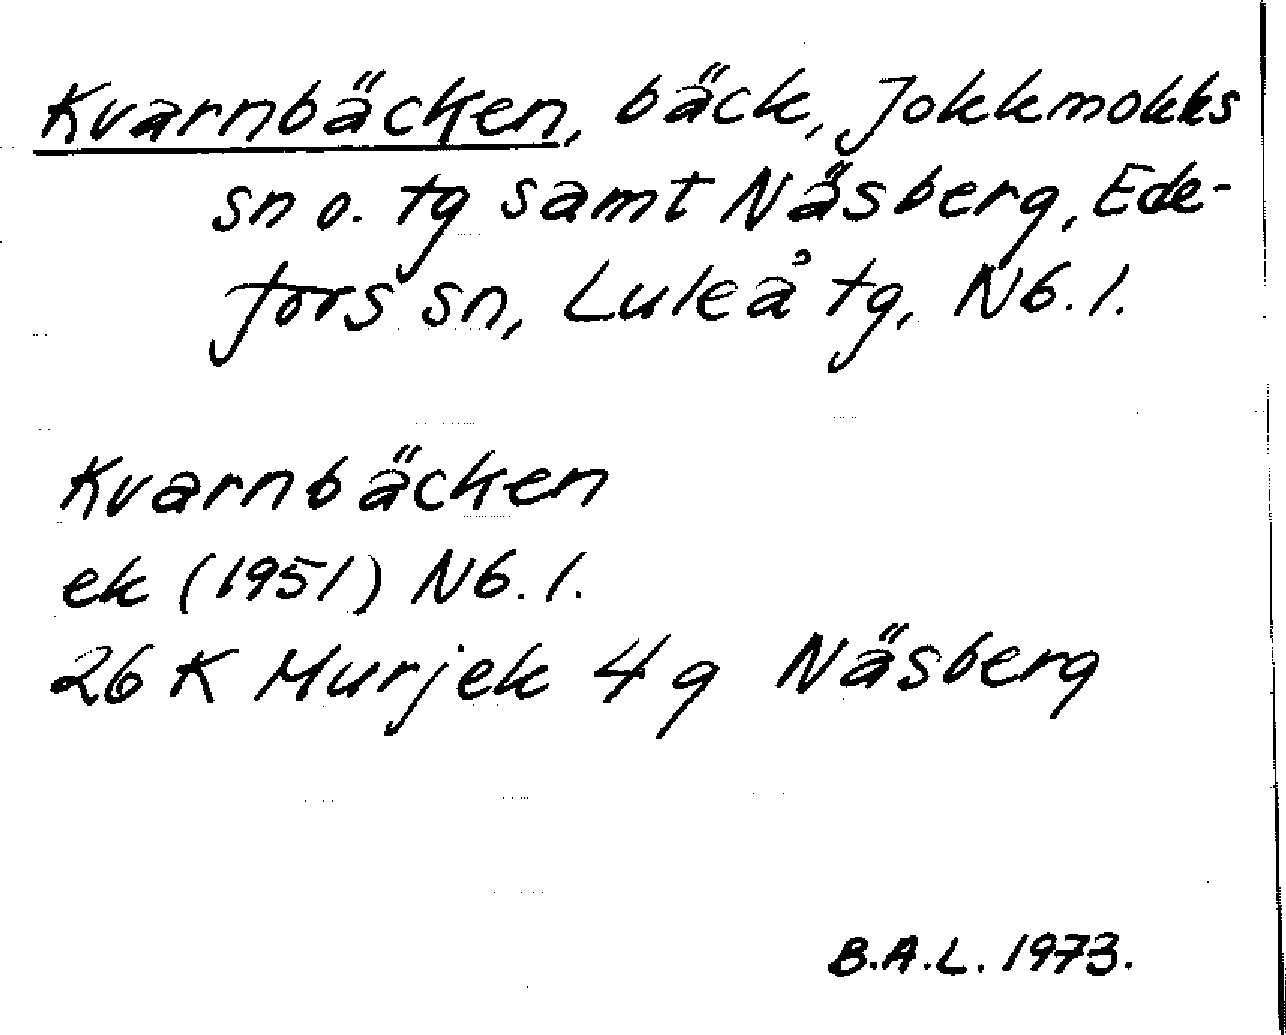 Kvarnbäcken, bäck, Jokkmokks
sn o. tg samt Näsberg, Ede-
fors sn, Luleå tg, Nb. l.
Kvarnbäcken
ek (1951) Nb. l.
26 K Murjek 4 g Näsberg
B.A.L. 1973.